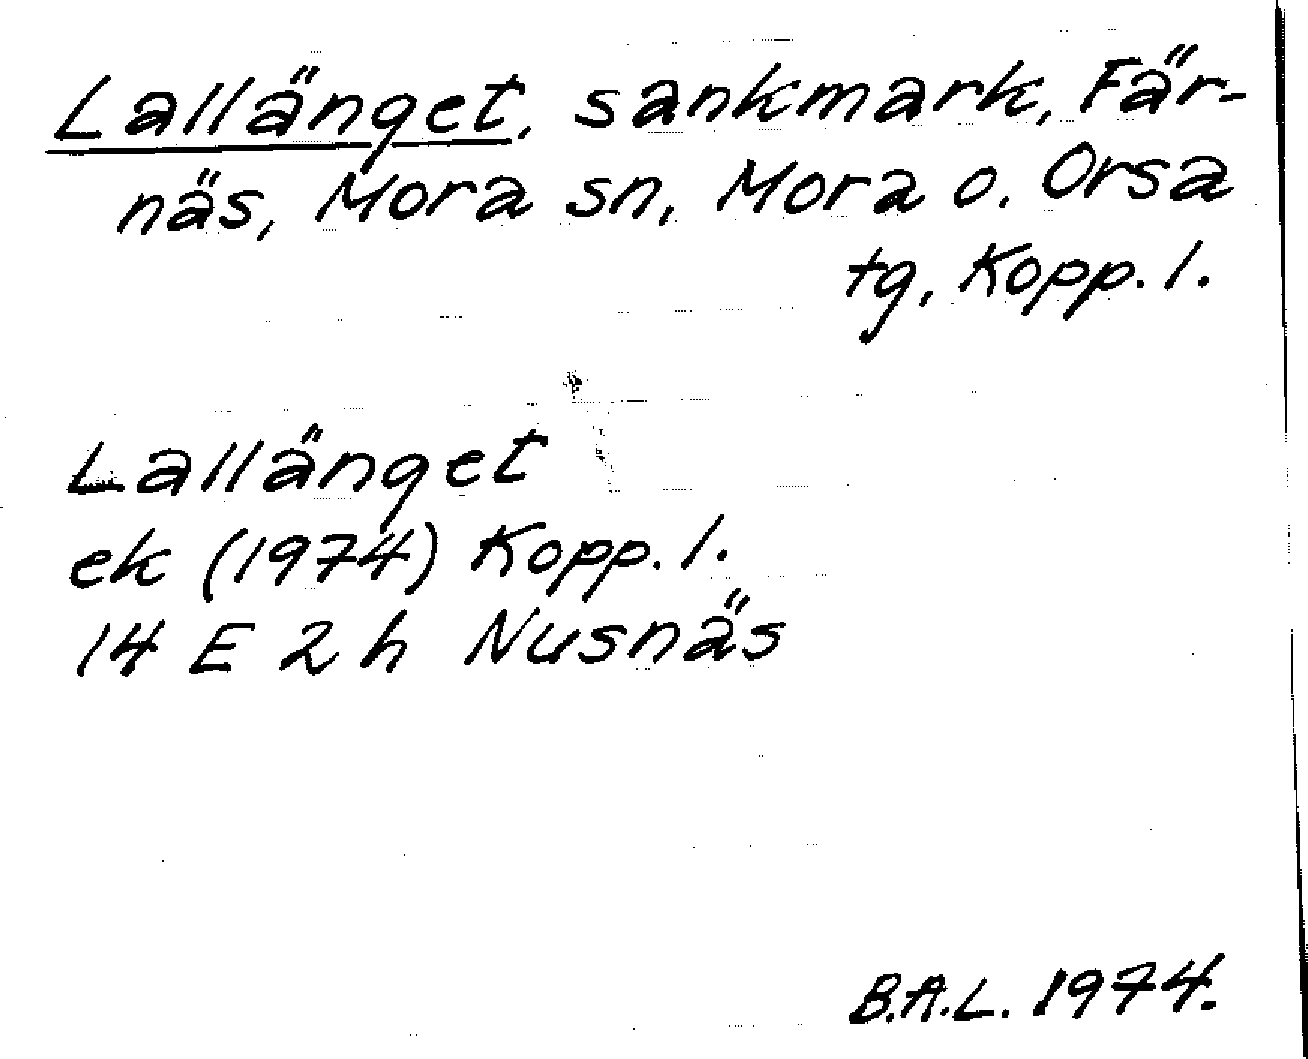 Lallänget, sankmark, Fär-
näs, Mora sn, Mora o. Orsa
tg, Kopp. l.
Lallänget
ek (1974) Kopp. l.
14 E 2 h Nusnäs
B.A.L. 1974.